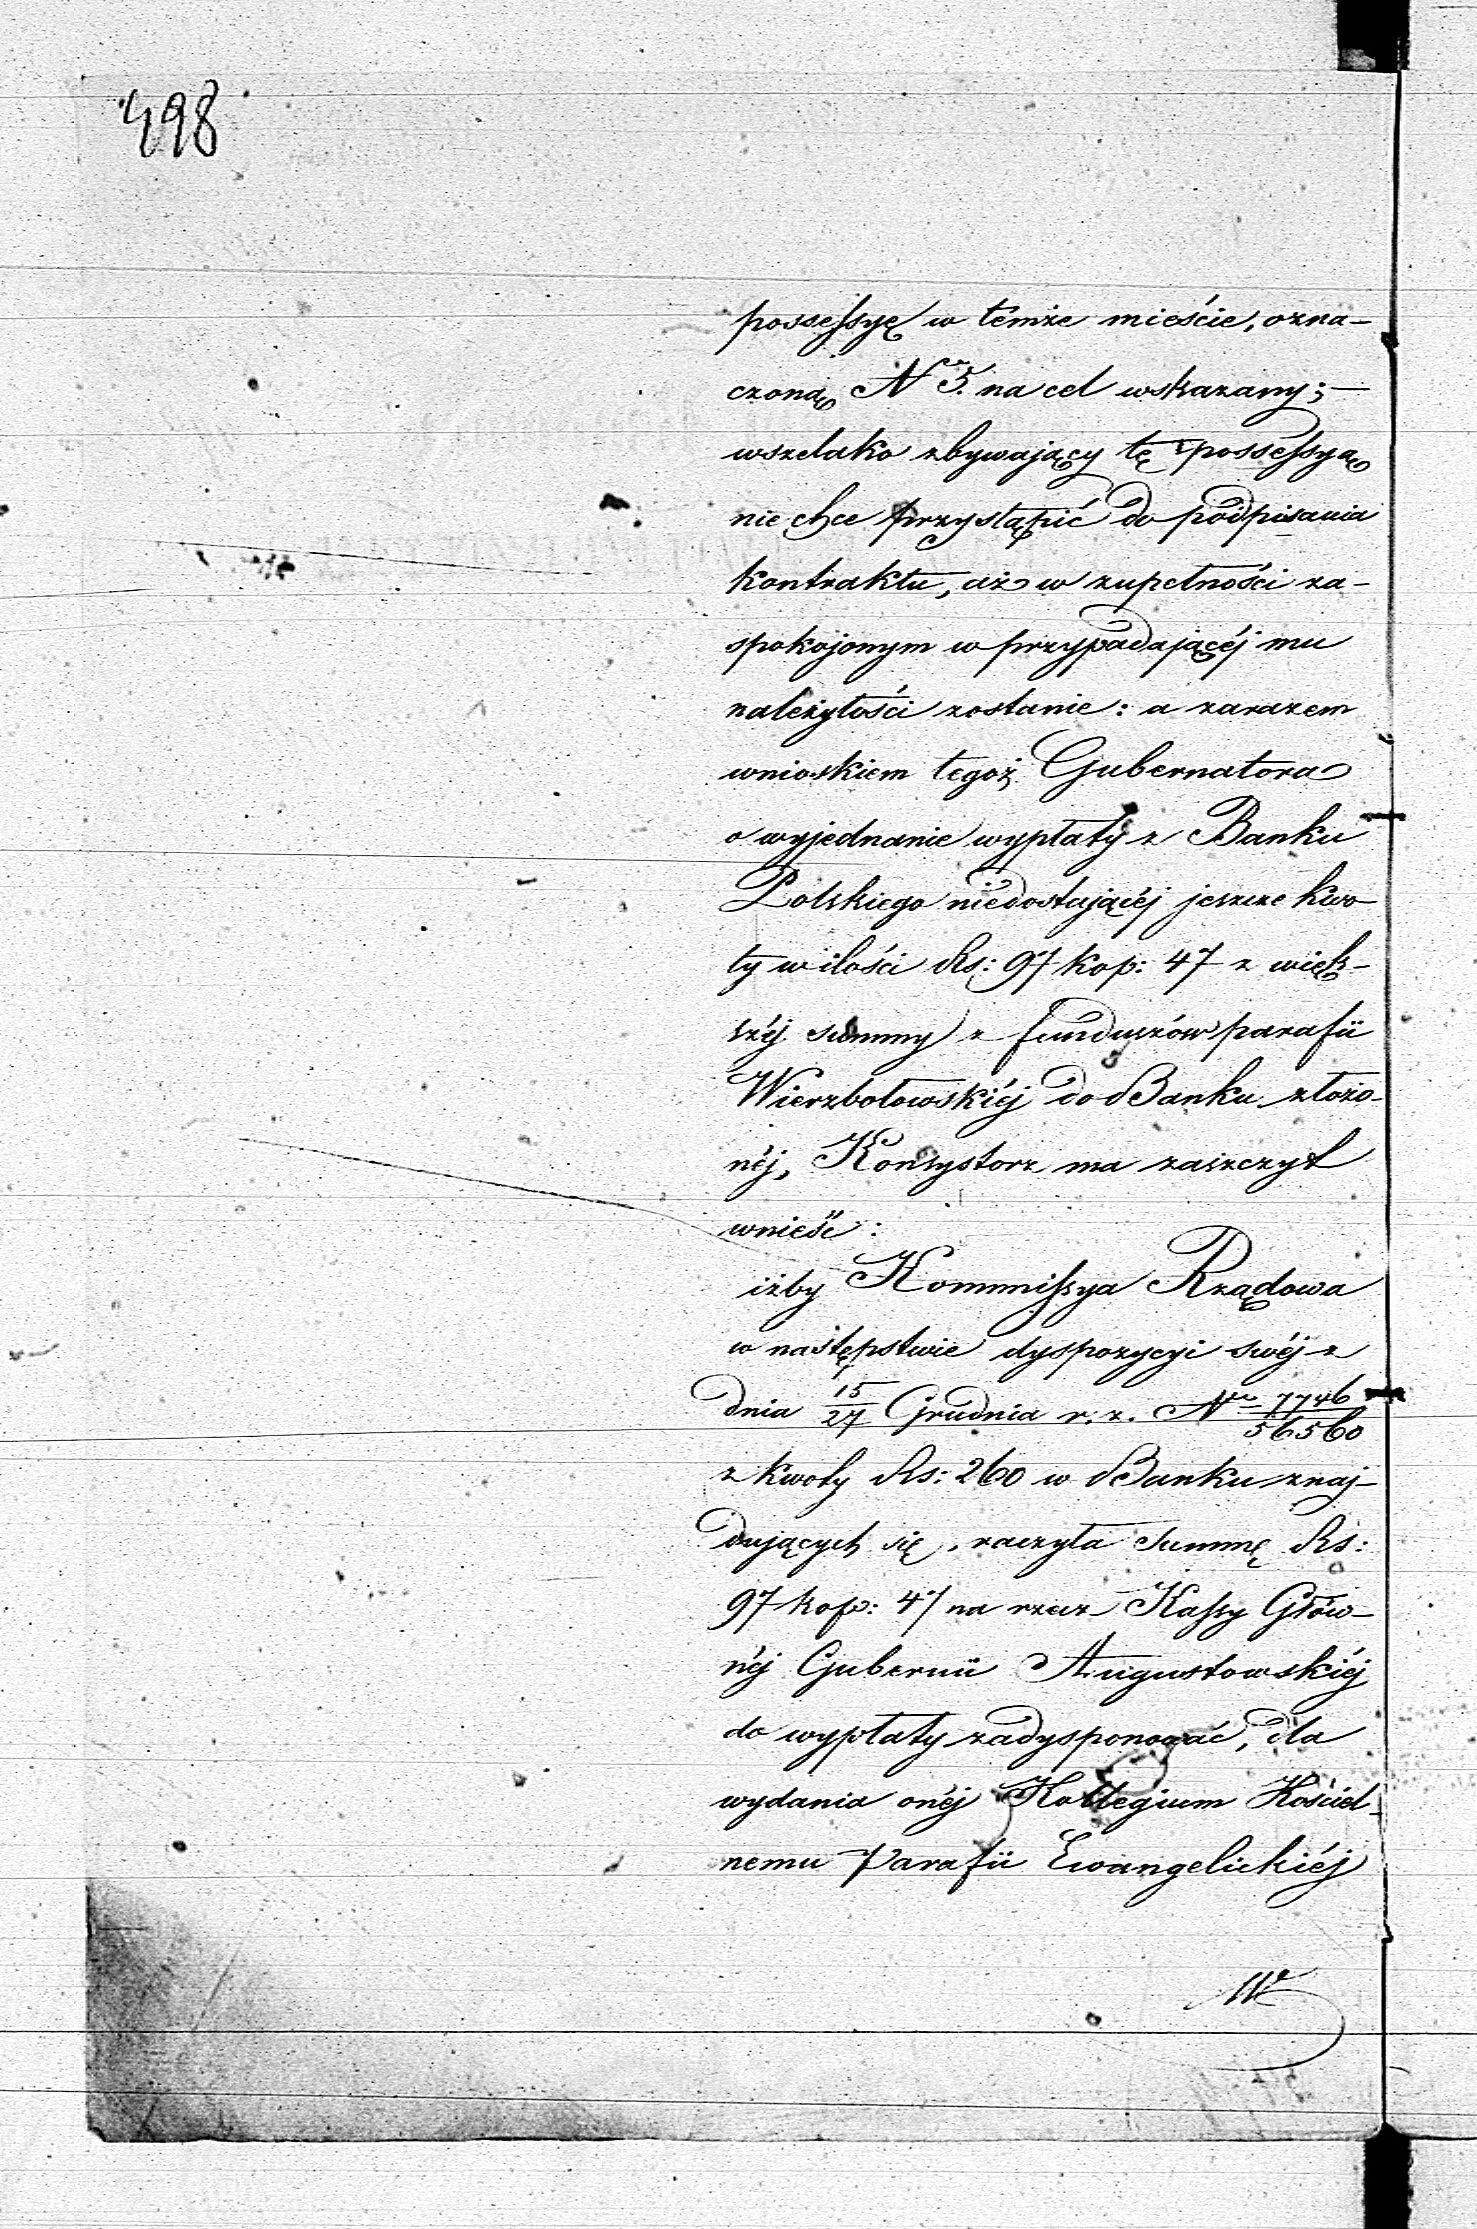 498
possessyę w temże mieście, ozna-
czoną N 5. na cel wskazany;-
wszelako zbywający tę possessyą
nie chce przystąpić do podpisania
kontraktu, aż w zupełności za-
spokojonym w przypadającéj mu
należytości zostanie: a zarazem
wnioskiem tegoż Gubernatora
o wyjednanie wypłaty z Banku
Polskiego niedostającéj jeszcze kwo-
ty w ilości Rs: 97 kop: 47 z więk-
széj summy z funduszów parafii
Wierzbołowskiéj do Banku złożo-
néj, Konsystorz ma zaszczyt
wnieść:
iżby Kommissya Rządowa
w następstwie dyspozycyi swéj z
dnia 15/27 Grudnia r. z. No 7746/56560
z kwoty Rs: 260 w Banku znaj-
dujących się, raczyła summę Rs:
97 kop: 47 na rzecz Kassy Głów-
néj Gubernii Augustowskiéj
do wypłaty zadysponować, dla
wydania onéj Kollegium Kościel-
nemu Parafii Ewangelickiéj
W